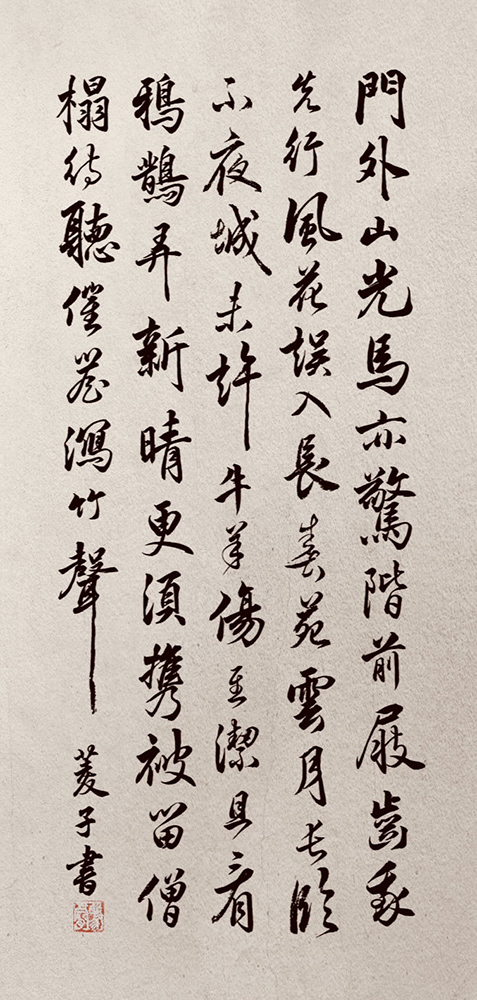 門外山光馬亦驚階前屐齒我
先行風花誤入長春苑雲月長臨
不夜城未許牛羊傷至潔且看
鴉鵲弄新晴更須携被留僧
榻待聽催簷瀉竹聲
菱子書